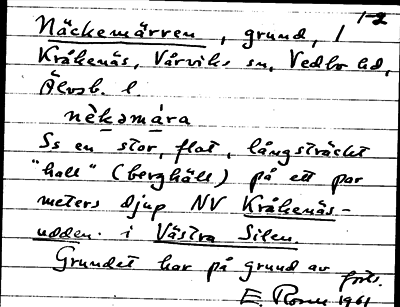 1-2
Näckemärren, grund, /
Kråkenäs, Vårviks sn, Vedbo hd,
Älvsb. l
nèkəmára
Ss en stor, flat, långsträckt
"hall" (berghäll) på ett par
meters djup NV Kråkenäs-
udden i Västra Silen.
Grundet har på grund av
forts.
E. 1961